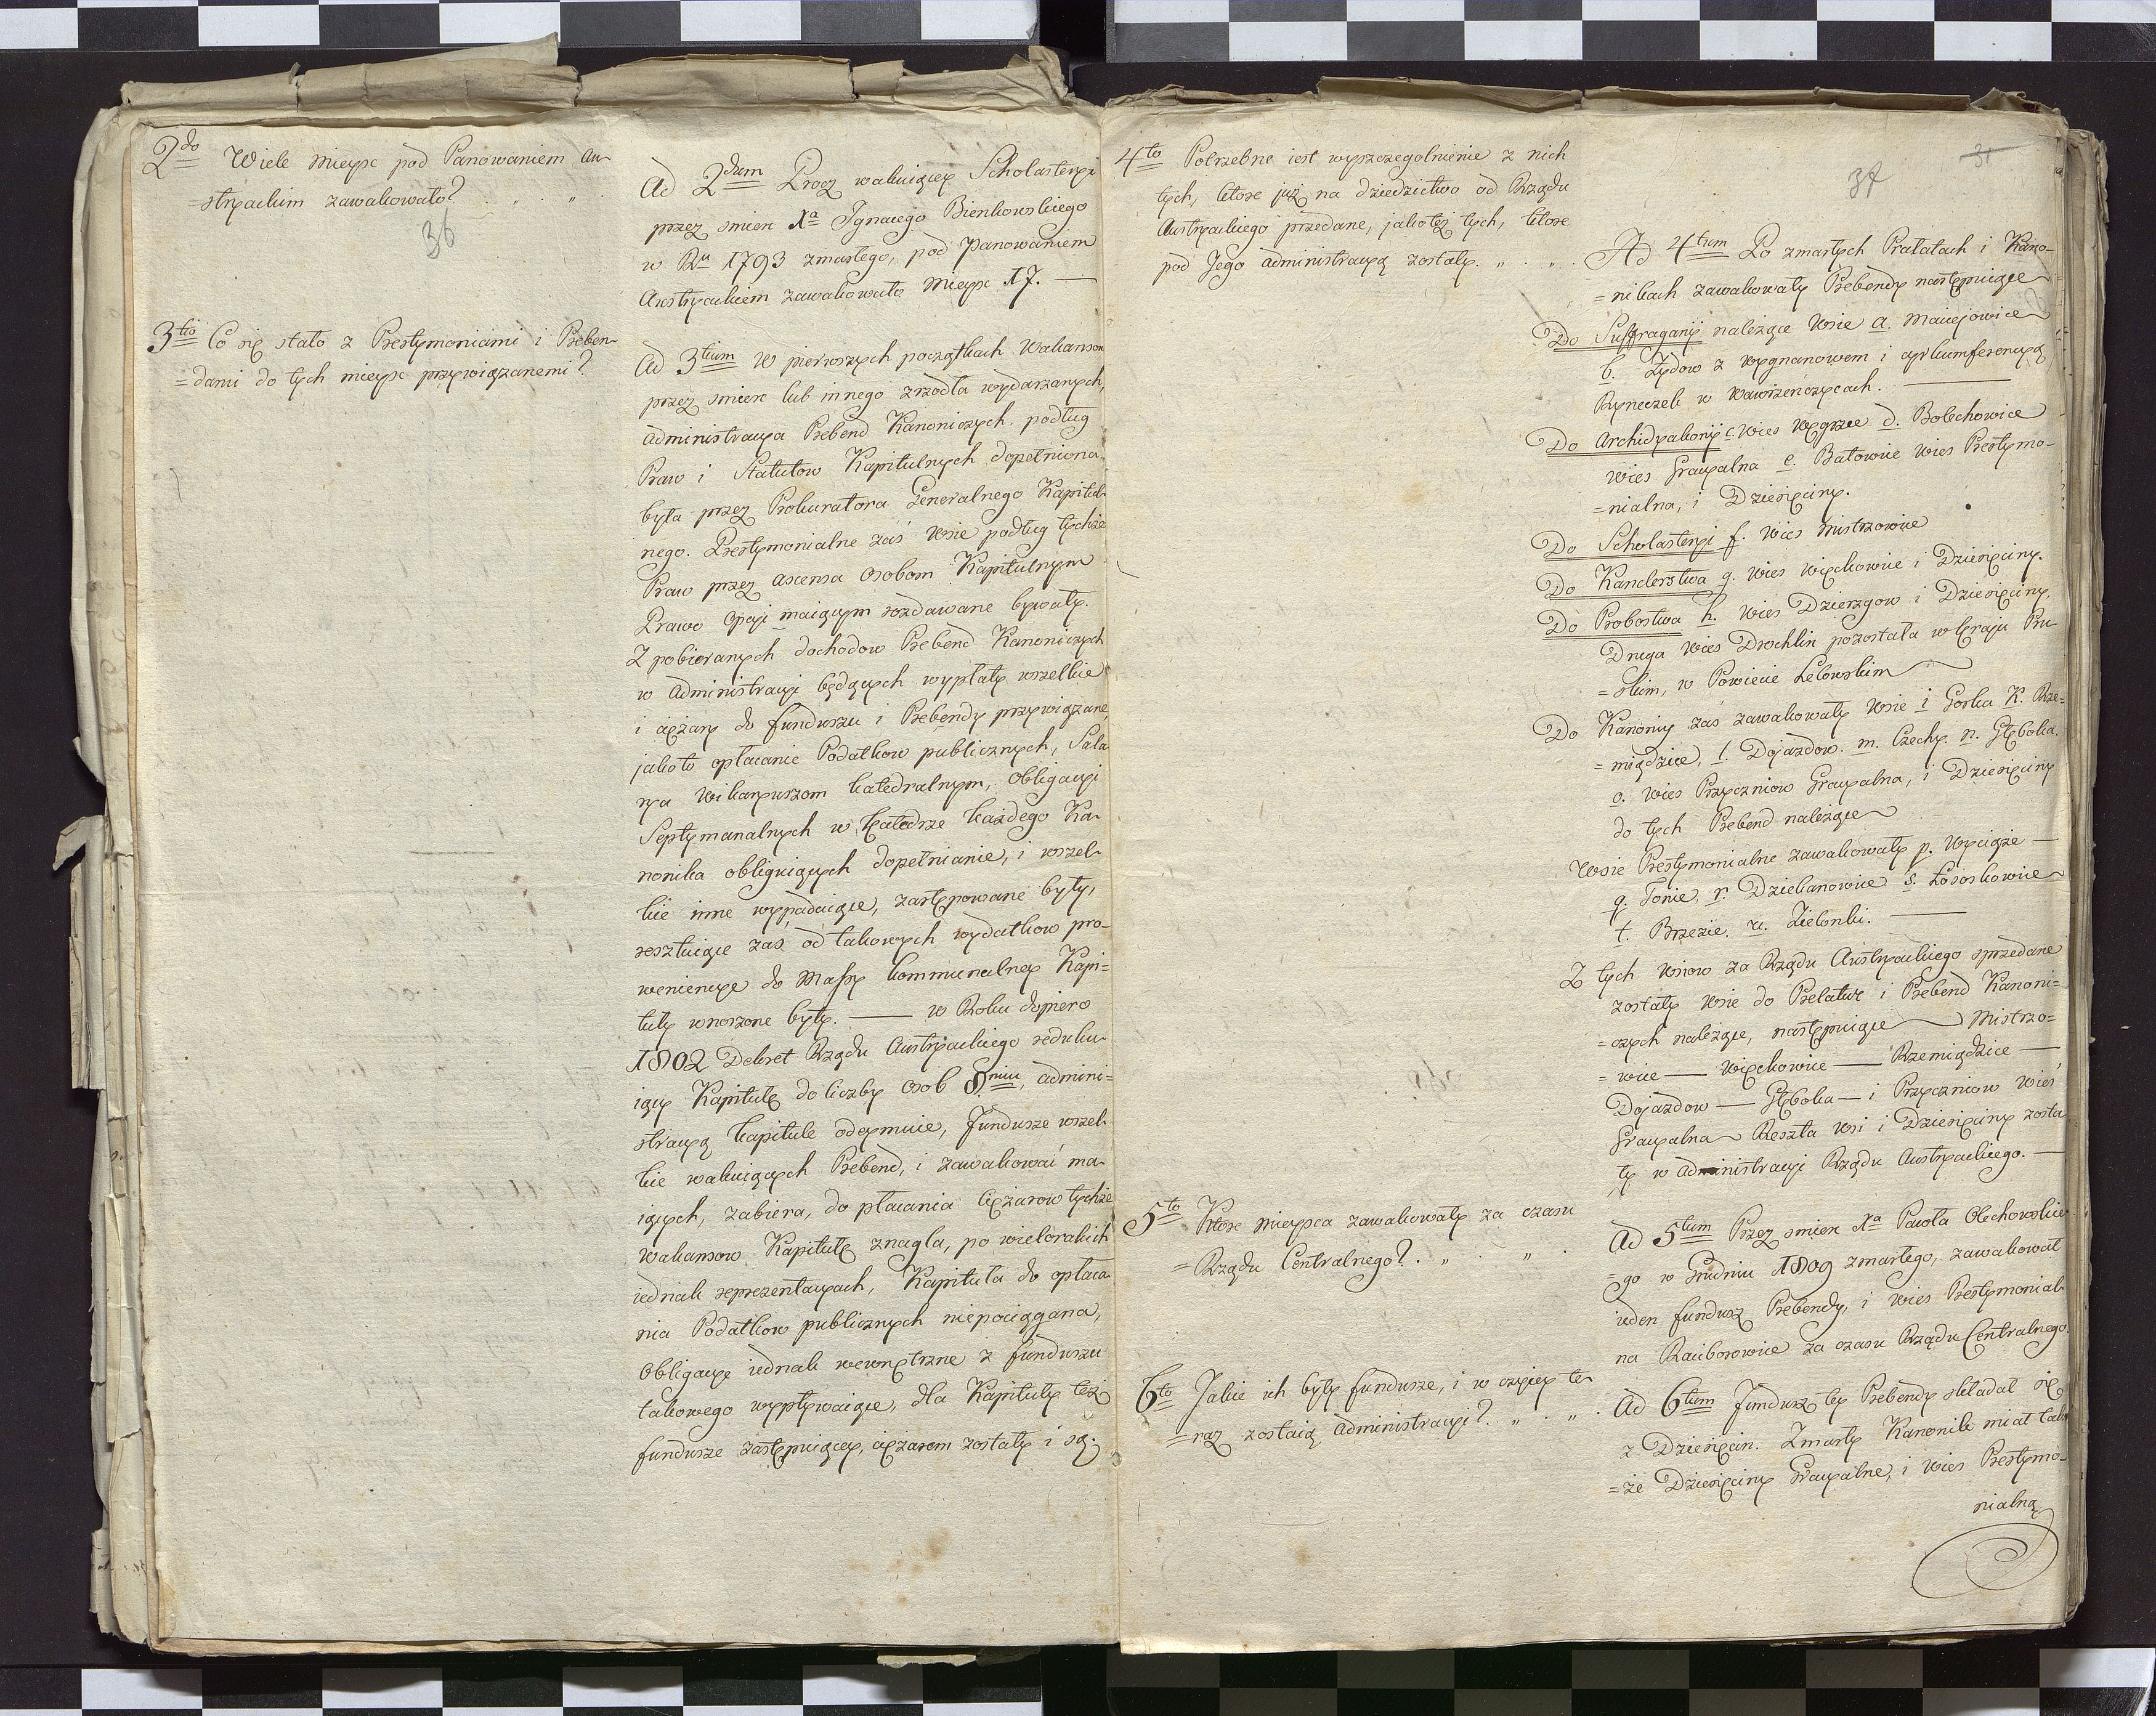 2do Wiele mieysc pod Panowaniem Au-
=stryackim zawakowało? . „ . „
36
Ad 2dum Procz wakuiącey Scholasteryi
przez smierc Xa Ignacego Bienkowskiego
w Ru 1793 zmarłego, pod Panowaniem
Austryackiem zawakowało mieysc 17. —
3tio Co się stało z Prestymoniami i Preben-
=dami do tych mieysc przywiązanemi?
Ad 3tium W pierwszych początkach Wakansow
przez smierc lub innego zrzodła wydarzanych,
administracya Prebend Kanoniczych podług
Praw i Statutow Kapitulnych dopełniona
była przez Prokuratora Generalnego Kapitul-
nego. Prestymonialne zaś wsie podług tychże
Praw przez ascensa osobom Kapitulnym
Prawo opcyi maiącym rozdawane bywały.
Z pobieranych dochodow Prebend Kanoniczych
w administracyi będących wypłaty wszelkie
i ciężary do funduszu i Prebendy przywiązane,
jakoto opłacanie Podatkow publicznych, Sala-
rya Wikaryuszom katedralnym, Obligacyi
Septymanalnych w Katedrze każdego Ka-
nonika obliguiących dopełnianie, i wszel-
kie inne wypadaiące, zastępowane były,
resztuiące zaś od takowych wydatkow pro-
wenieucye do Massy kommunalney Kapi=
tuły wnoszone były. — w Roku dopiero
1802 Dekret Rządu Austryackiego reduku-
iący Kapitułę do liczby osob 8miu, admini=
stracyą Kapitule odeymuie, Fundusze wszel-
kie wakuiących Prebend, i zawakować ma-
iących, zabiera, do płacania Ciężarow tychże
Wakansow Kapitułę znagla, po wielorakich
iednak reprezentacyach, Kapituła do opłaca-
nia Podatkow publicznych niepociągana,
Obligacye iednak wewnętrzne z funduszu
takowego wypływaiące, dla Kapituły też
fundusze zastępuiącey, ciężarem zostały i są.
31
37
4to Potrzebne iest wyszczegolnienie z nich
tych, ktore już na dziedzictwo od Rządu
Austryackiego przedane, jakoteż tych, ktore
pod Jego administracyą zostały. „ . „ .
Ad 4tum Po zmarłych Prałatach i Kano-
=nikach zawakowały Prebendy następuiące
Do Suffraganii należące wsie a. Maciejowice
b. Zydow z wygnanowem i cyrkumferencyą
Ryneczek w Wawrzenczycach. —
Do Archidyakonii c. Wies Węgrzce d. Bolechowice
wies Gracyalna e. Batowice wies Prestymo-
=nialna, i Dziesięciny.
Do Scholasteryi f. Wies Mistrzowice
Do Kanclerstwa g. wies Więckowice i Dziesięciny.
Do Probostwa h. wies Dzierzgow i Dziesięciny.
Druga wies Drochlin pozostała w Kraju Pru-
=skim, w Powiecie Lelowskim
Do Kanonii zaś zawakowały wsie i Gorka K. Rze-
=międzice, l. Dojazdow. m. Czechy. n. Głęboka.
o. wies Przyczniow Gracyalna, i Dziesięciny
do tych Prebend należące
Wsie Prestymonialne zawakowały p. Wyciąże —
q. Tonie, r. Dziekanowice s. Łososkowice
t. Brzezie. u. Zielonki. —
Z tych wsiow za Rządu Austryackiego sprzedane
zostały wsie do Prelatur i Prebend Kanoni=
=czych należące, następuiące — Mistrzo=
=wice — Więckowice — Rzemiędzice —
Dojazdow — Głęboka — i Przyczniow wies
Gracyalna Reszta wsi i Dziesięciny zosta-
ły w administracyi Rządu Austryackiego. —
5to Ktore mieysca zawakowały za czasu
=Rządu Centralnego? . „ . „ .
Ad 5tum Przez smierc Xa Pawła Olechowskie-
=go w Grudniu 1809 zmarłego, zawakował
ieden fundusz Prebendy, i wies Prestymonial-
na Raciborowice za czasu Rządu Centralnego.
6to Jakie ich były fundusze, i w czyiey te-
=raz zostaią administracyi? . „ . „ .
Ad 6tum Fundusz tey Prebendy składał się
z Dziesięcin. Zmarły Kanonik miał tak-
=że Dziesięciny Gracyalne, i wies Prestymo-
nialną